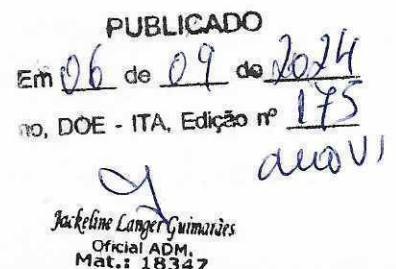 PUBLICADO
Em 06 de 09 de 2024
no, DOE - ITA, Edição nº 175
ano VI
Jackeline Langer Guimarães
Oficial ADM.
Mat.: 18347